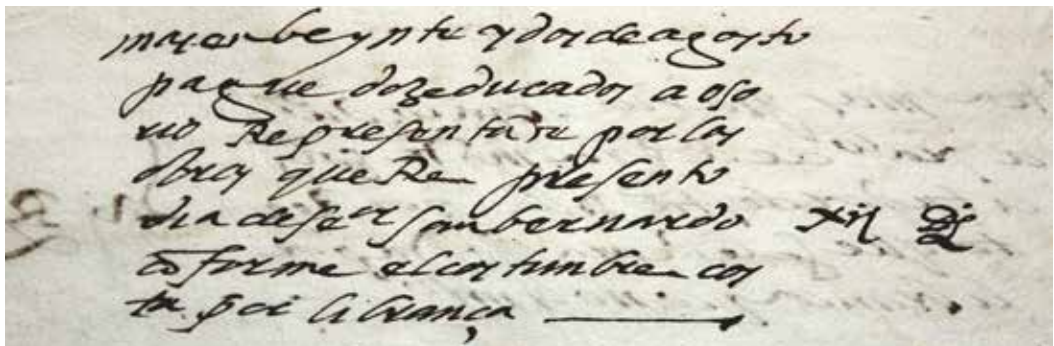 mas en beynte y dos de agosto
pague doze ducados a oso
rio Representāte por las
obras que Re presento
dia de señor san bernardo xij Ds
cōforme el costumbre cos
ta por librança